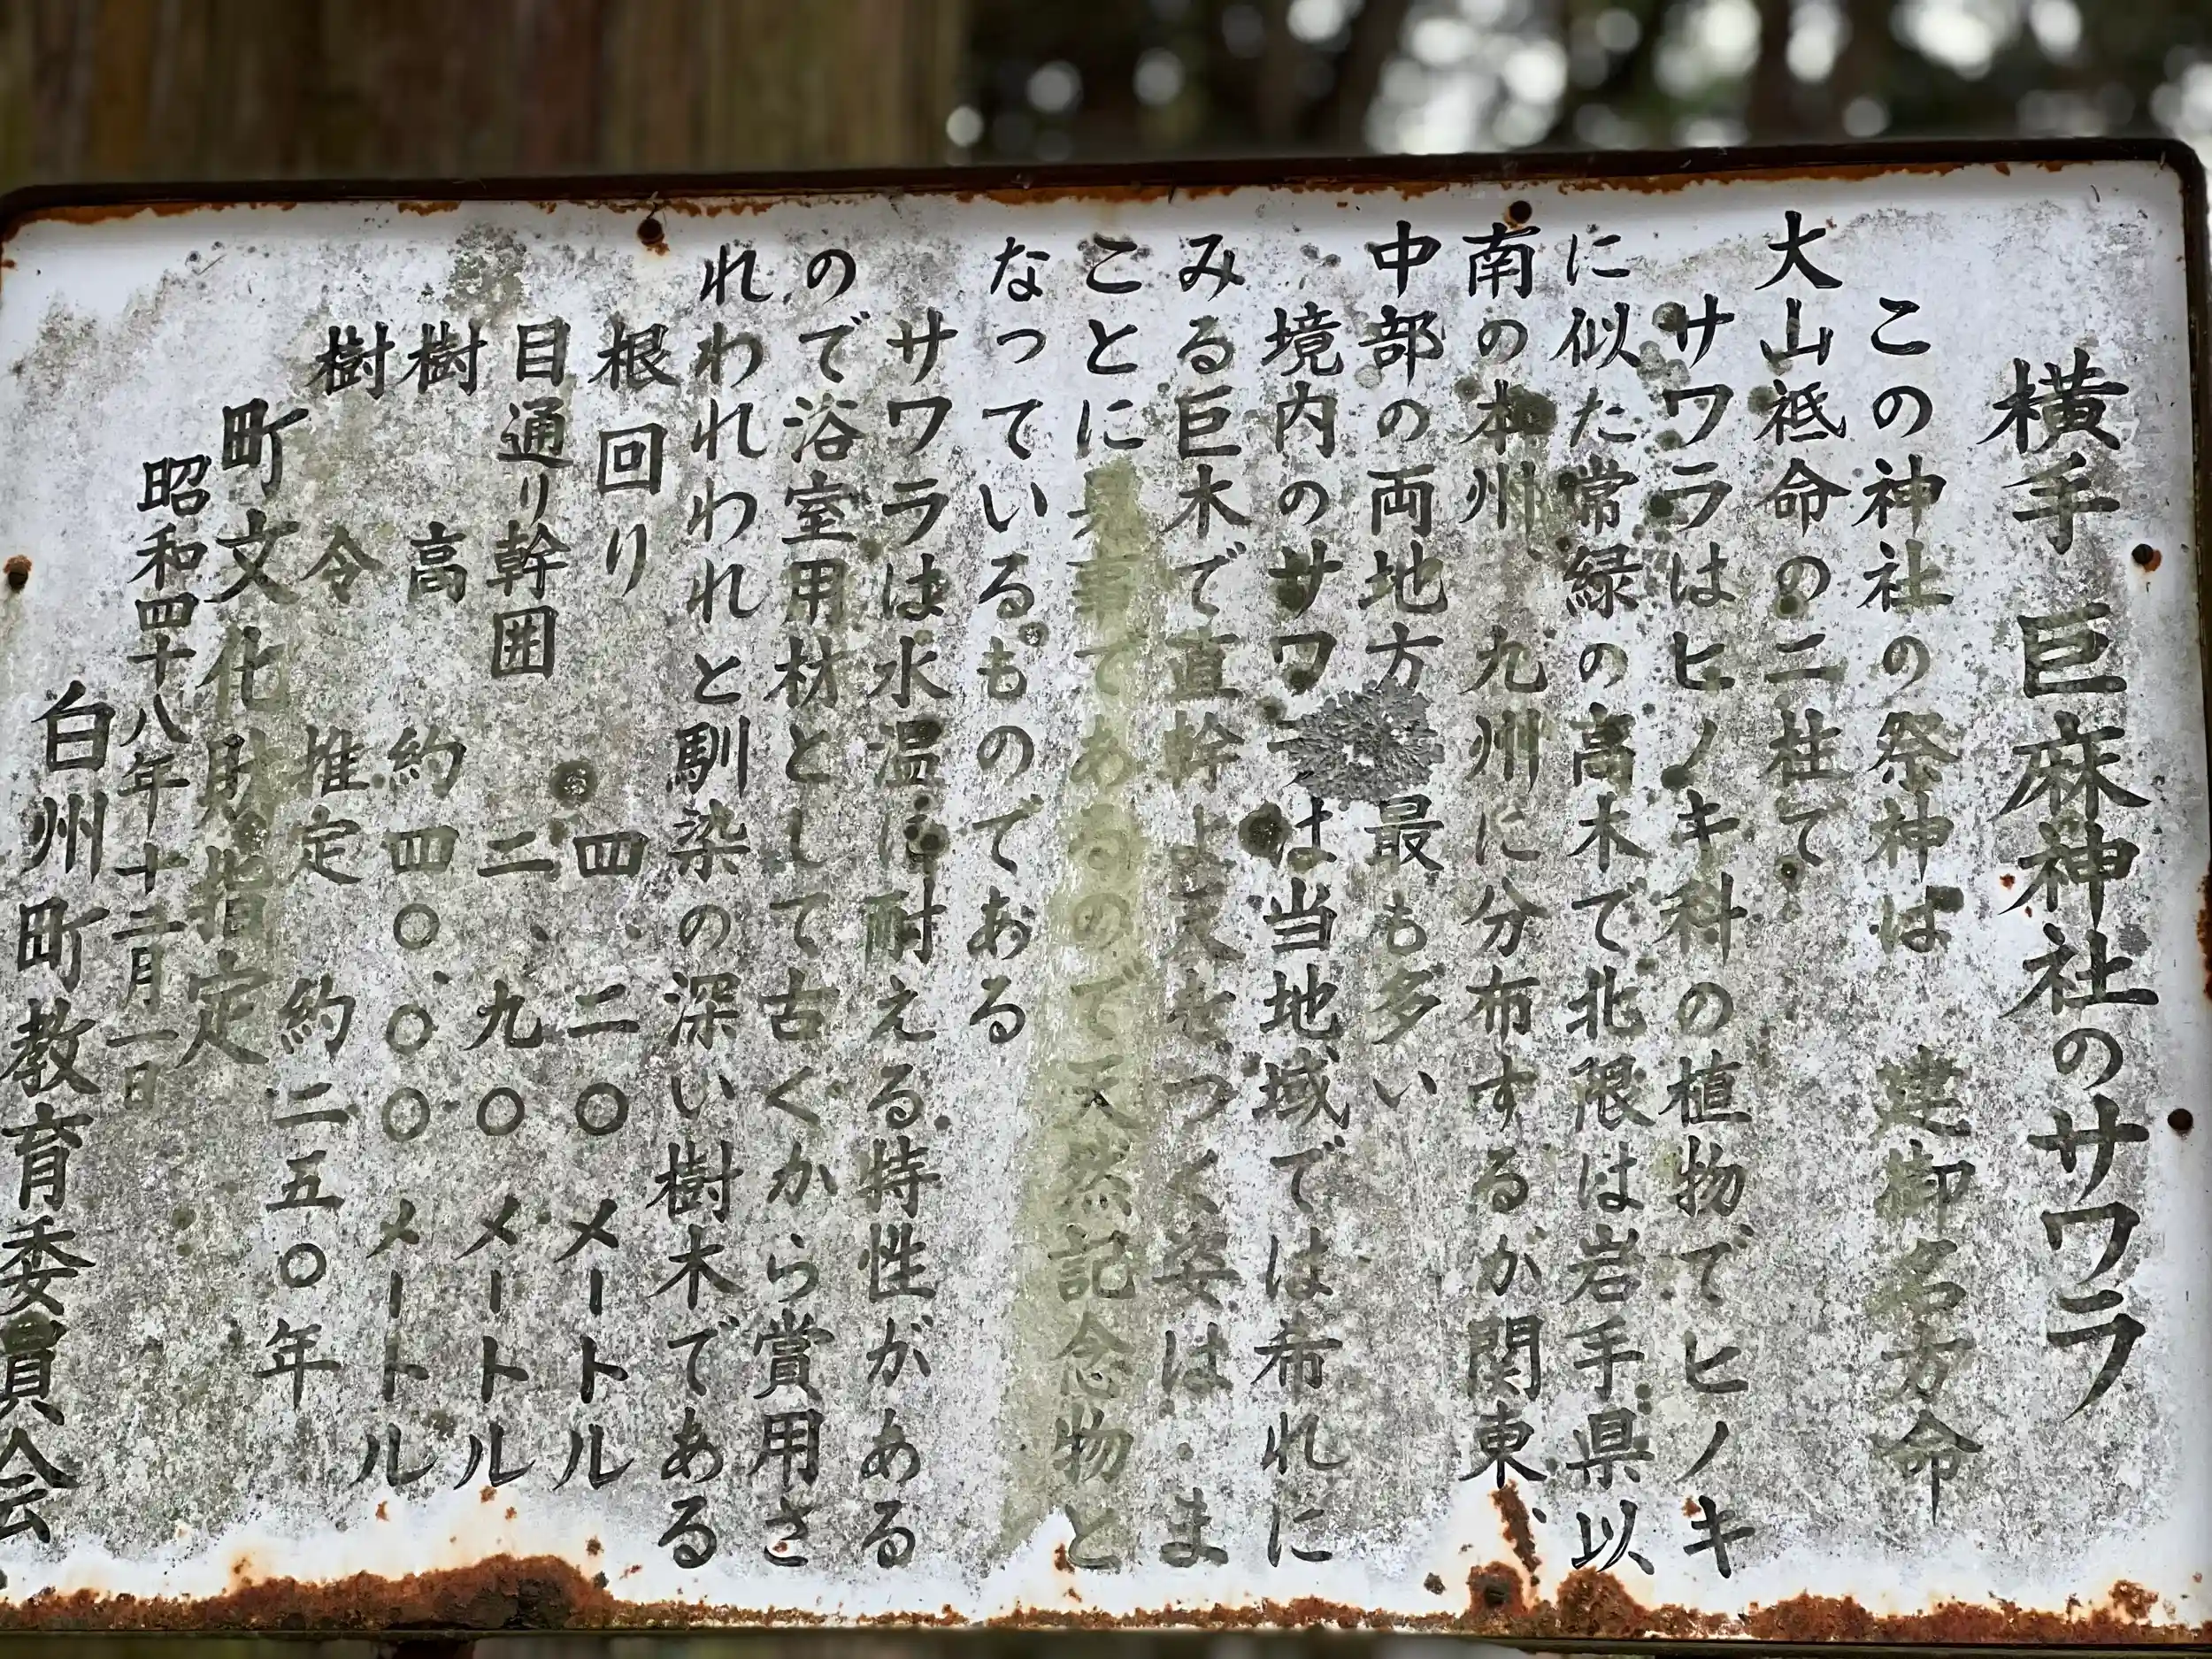 横手 巨麻神社のサワラ
この神社の祭神は 建御名方命
大山祗命の二柱で、
サワラはヒノキ科の植物でヒノキ
に似た常緑の高木で北限は岩手県以
南の本州、九州に分布するが関東、
中部の両地方 最も多い
境内のサワラは当地域では希れに
みる巨木で直幹 天をつく姿は、ま
ことに見事であるので天然記念物と
なっているものである
サワラは水温に耐える特性がある
ので浴室用材として古くから賞用さ
れわれわれと馴染の深い樹木である
根回り 四、二〇メートル
目通り幹囲 二、九〇メートル
樹高 約四〇、〇〇メートル
樹令 推定 約二五〇年
町文化財指定
昭和四十八年十二月一日
白州町教育委員会